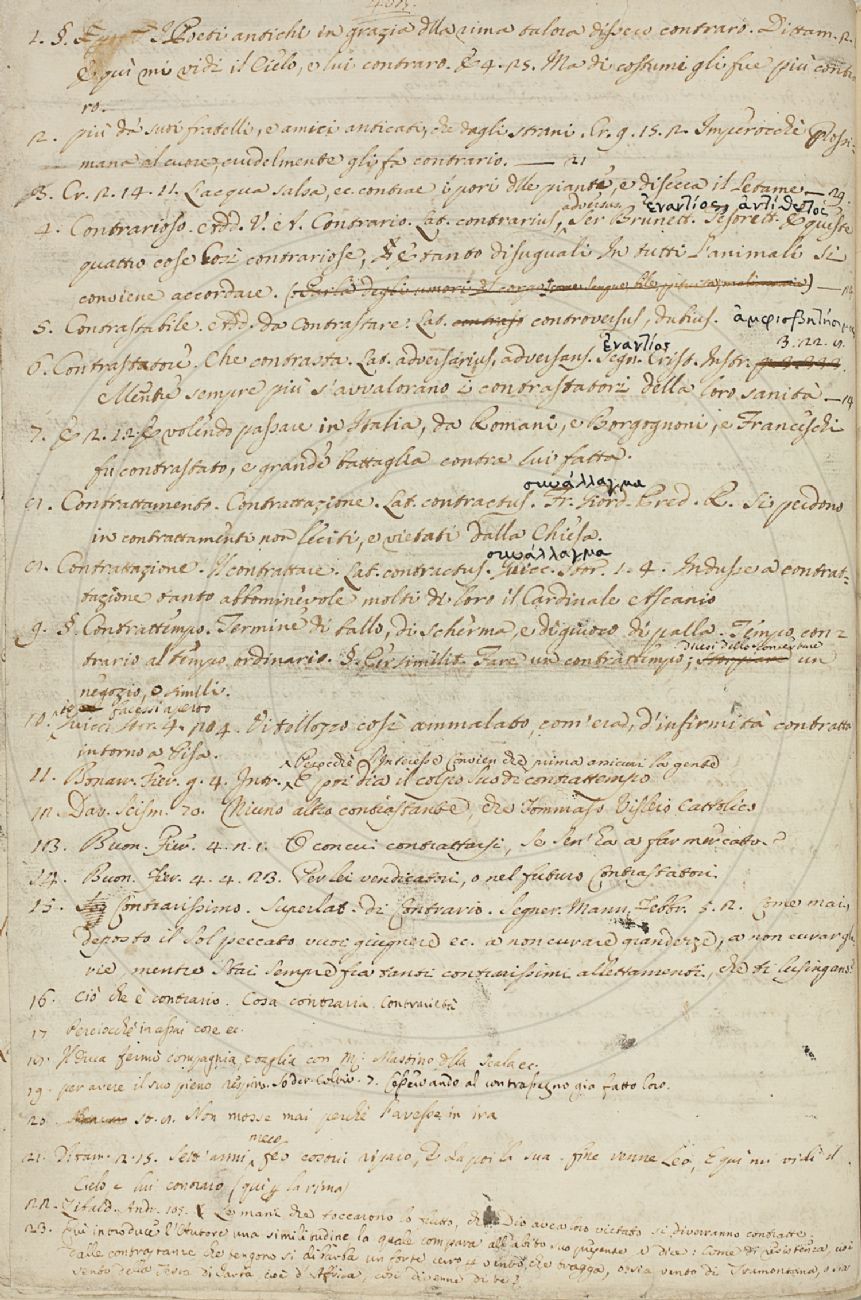 1. §. I Poeti antichi in grazia della rima talora dissero contraro. Dittam. 2.
E qui mi vidi il Cielo, e lui contraro. E 4. 25. Ma di costumi gli fue più contra-
ro.
2. più da' suoi fratelli, e amici anticati, che dagli strani. Cr. 9. 15. 2. Imperocchè prossi-
mana al cuore, crudelmente gli fa contrario. — 21
3. Cr. 2. 14. 11. L'acqua salsa, ec. contrae i pori delle piante, e disecca il letame — 29.
adversus ἐναντίος, ἀντίθετός
4. Contrarioso. Add. V. e V. Contrario. Lat. contrarius, Ser Brunett. Tesorett. E queste
quattro cose così contrariose, E tanto disuguali In tutti l'animali Si
conviene accordare.
5. Contrastabile. Add. da Contrastare: Lat. controversus, dubius. ἀμφισβητήσιμος
ἐναντίος 3. 22. 9.
6. Contrastatore. Che contrasta. Lat. adversarius, adversans. Segn. Crist. Instr.
Mentre sempre più s'avvalorano i contrastatori della loro sanità — 14
7. E 2. 12. E volendo passare in Italia, da Romani, e Borgognoni, e Franceschi
fu contrastato, e grande battaglia contra lui fatta.
συνάλλαγμα
Contrattamento. Contrattazione. Lat. contractus. Fr. Giord. Pred. R. Si perdono
in contrattamenti non leciti, e vietati dalla Chiesa.
συνάλλαγμα
Contrattazione. Il contrattare. Lat. contractus. Guicc. Stor. 1. 4. Indusse a contrat-
tazione tanto abbominevole molti di loro il Cardinale Ascanio
9. §. Contrattempo. Termine di ballo, di scherma, e di giuoco di palla. Tempo con-
trario al tempo ordinario. §. Per similit. Fare un contrattempo; un
negozio, o simili.
10. Guicc. Stor. 4. 204. Vitellozzo così ammalato, com'era, d'infirmità contratta
intorno a Pisa.
Perocchè Interesse Convien che prima amicar la gente
11. Bonarr. Fier. g. 4. Intr. E poi dia il colpo suo di contrattempo
12. Dav. Scism. 70. Niuno altro contrastante, che Tommaso Vescovo Cattolico
13. Buon. Fier. 4. 2. 1. O con cui contrattarsi, se sen' ha a far mercato?
14. Buon. Fier. 4. 4. 23. Per lei vendicatori, o nel futuro Contrastatori
15. Contrarissimo. Superlat. di Contrario. Segner. Mann. Febbr. 5. 2. Come mai,
deposto il sol peccato vuoi giugnere ec. a non curare grandezze, a non curar glo-
rie, mentre stai sempre fra tanti contrarissimi allettamenti, che ti lusingano?
16. Ciò che è contrario. Cosa contraria. Contrarietà
17 Perciocchè in assai cose ec.
Il Duca fermò compagnia, e taglia con M. Mastino della Scala ec.
19. per avere il suo pieno Soder. Coltiv. 7. Osservando al contrassegno già fatto loro.
20. Non mosse mai perchè l'avesse in ira
meco
21. Dittam. 2. 15. Sett' anni feo costui riparo, E da poi la sua fine venne Leo, E qui mi vidi il
Cielo e lui contraro (qui per la rima)
22. Zibald. Andr. 105. Le mani che toccarono lo frutto, che Dio avea loro vietato si divorranno contratte.
23. Qui introduce l'Autore una similitudine la quale compara all'abito suo presente e dice: Come di resistenza, cioè
dalle contrastanze che vengono si disbarba un forte cerro per vento, che tragga, ossia vento di Tramontana, o sia
vento della Terra di Jarba, cioè d'Affrica, così divenne di be